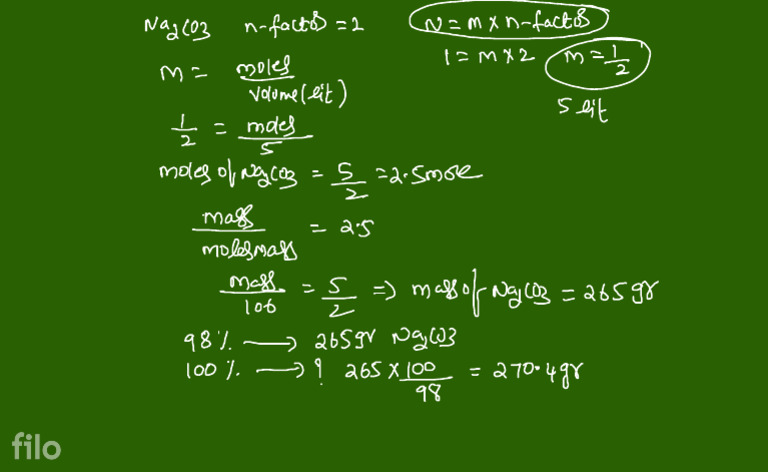 Na2CO3 n-factor = 2 N = M x n-factor
1 = M x 2 M = 1/2
M = moles / volume(lit)
5 lit
1/2 = moles / 5
moles of Na2CO3 = 5/2 = 2.5 mole
mass / molar mass = 2.5
mass / 106 = 5/2 => mass of Na2CO3 = 265 gr
98% → 265 gr Na2CO3
100% → ? 265 x 100/98 = 270.4 gr
filo